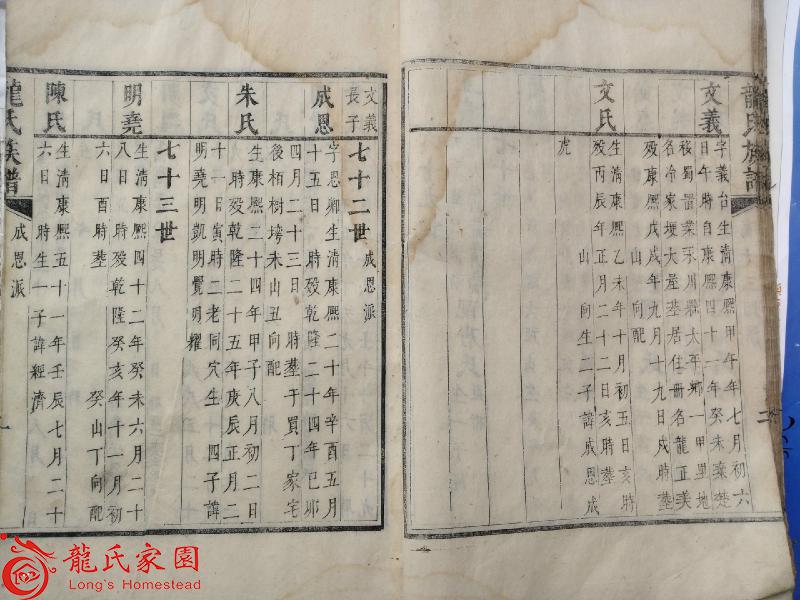 龍氏族譜
二
文義
字義台生清康熙甲午年七月初六
日午時自康熙四十一年癸未棄楚
移蜀置業永川縣太平鄉一甲里地
名冷家埂大壘塟居住冊名龍正美
歿康熙戊戌年九月十九日戌時塟
山 向配
文氏
生清康熙乙未年十月初五日亥時
歿丙辰年正月二十二日亥時塟
山 向生二子諱成恩成
虎
文義長子
七十二世 成恩派
成恩
字恩卿生清康熙二十年辛酉五月
十五日 時歿乾隆二十四年已卯
四月二十三日 時塟于買丁家宅
後栢樹塆未山丑向配
朱氏
生康熙二十四年甲子八月初二日
時歿乾隆二十五年庚辰正月二
十一日寅時二老同穴生 四子諱
明堯明凱明覺明耀
七十三世
明堯
生清康熙四十二年癸未六月二十
八日 時歿乾隆癸亥年十一月初
六日酉時塟 癸山丁向配
陳氏
生清康熙五十一年壬辰七月二十
六日 時生一子諱經濟
龍氏族譜
成恩派
一
龍氏家園
Long's Homestead